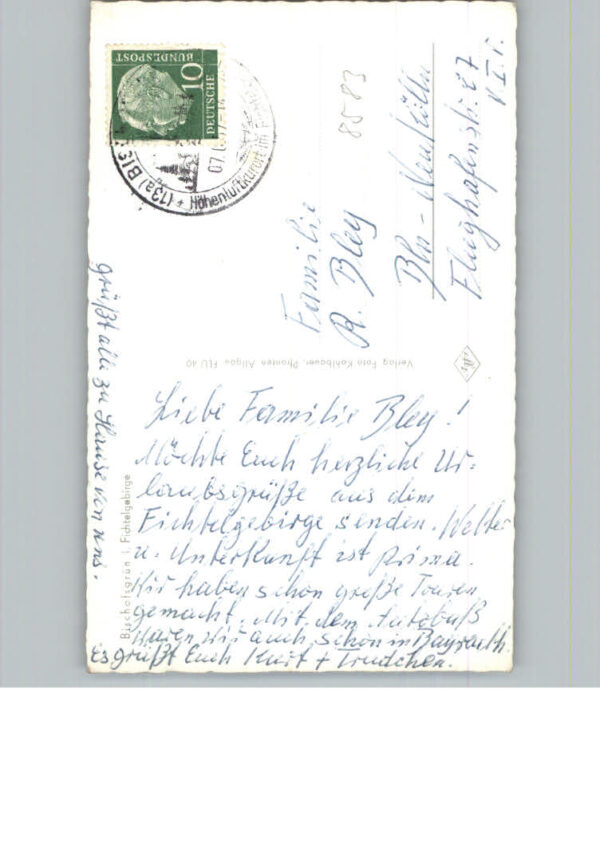 DEUTSCHE
BUNDESPOST
10
(13a)
Höhenluftkurort im
07.
8583
Familie
R. Bley
Bln-Neukölln
Flughafenstr. 27
V. I. r.
Verlag Foto Kohlbauer, Pfronten Allgäu FLU 40
Bischofsgrün i. Fichtelgebirge
Liebe Familie Bley!
Möchte Euch herzliche Ur-
laubsgrüße aus dem
Fichtelgebirge senden. Wetter
u. Unterkunft ist prima.
Wir haben schon große Touren
gemacht. Mit dem Autobuß
waren wir auch schon in Bayreuth.
Es grüßt Euch Kurt + Trudchen.
grüßt alle zu Hause von uns.